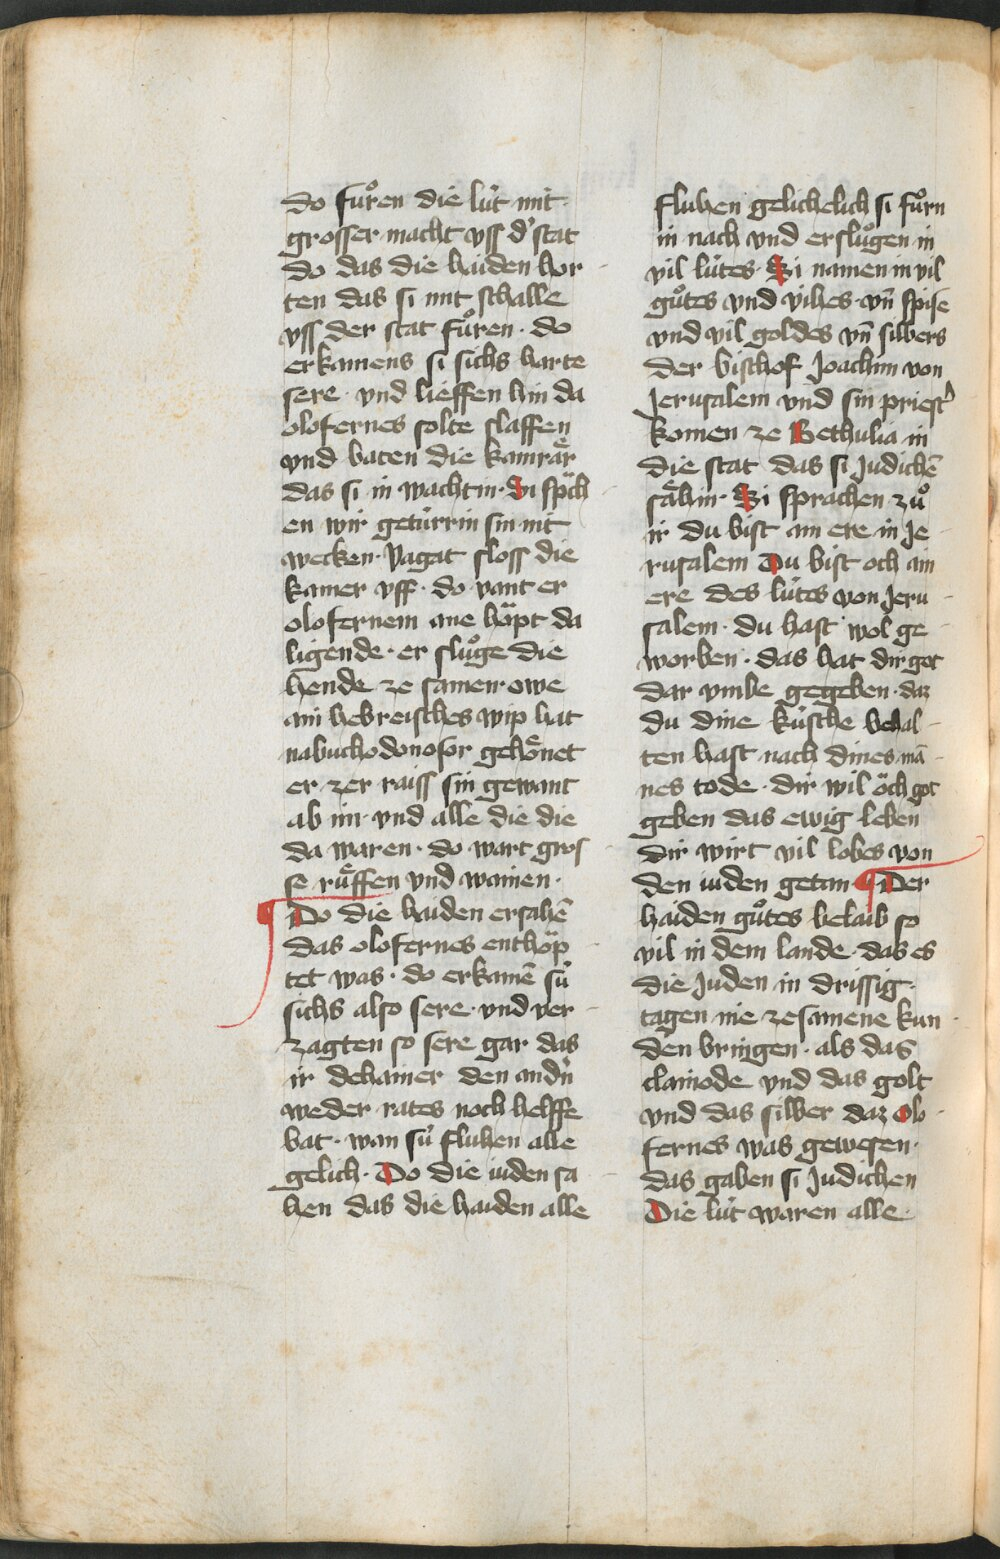 do fuͦren die lút mit
grosser macht vss dˀ stat
do das die haiden hor
ten das si mit schalle
vss der stat fuͦren · do
erkamens si sichs harte
sere · vnd lieffen hin da
olofernes solte slaffen
vnd baten die kamraͤr
das si in wachtin · Si spͣch
en wir getúrrin sin nit
wecken · Vagat sloss die
kamer vff · do vant er
olofernem ane hoͤpt da
ligende · er sluͦge die
hende ze samen · owe
ain hebreisches wip hat
nabuchodonosor gehoͤnet
er zer raiss sin gewant
ab im · vnd alle die die
da waren · do wart gros
se ruͤffen vnd wainen ·
Do die haiden ersahē
das olofernes enthoͤp
tet was · do erkamē sú
sichs also sere · vnd ver
zagten so sere gar das
ir dehainer den andˀn
weder rates noch helffe
bat · wan sú fluhen alle
gelich · Do die iuden sa
hen das die haiden alle
fluhen gelichelich si fuͦrn
in nach vnd ersluͦgen in
vil lútes · Si namen in vil
guͦtes vnd vihes · vn̄ spise
vnd vil goldes vn̄ silbers
der bischof Joachim von
Jerusalem vnd sin priestˀ
komen ze Bethulia in
die stat das si Judichē
saͤhin · Si sprachen zuͦ
ir du bist ain ere in Je
rusalem Du bist och ain
ere des lútes von Jeru
salem · du hast wol ge
worben · das hat dir got
dar vmbe gegeben · daz
du dine kúsche behal
ten hast nach dines mā
nes tode · dir wil oͤch got
geben das ewig leben
dir wirt vil lobes von
den iuden getan ¶ Der
haiden guͦtes belaib so
vil in dem lande · das es
die Juden in drissig ·
tagen nie zesamene kun
den bringen · als das
clainode vnd das golt
vnd das silber daz Olo
fernes was gewesen ·
das gaben si Judichen
Die lút waren alle